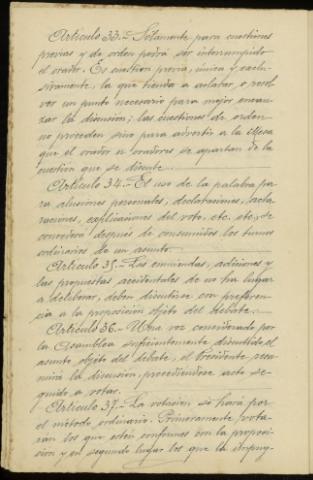 Artículo 33.- Solamente para cuestiones
previas y de orden podrá ser interrumpido
el orador. Es cuestión previa, única y exclu-
sivamente, la que tienda a aclarar, o resol-
ver un punto necesario para mejor encau-
zar la discusión; las cuestiones de orden
no proceden sino para advertir a la Mesa
que el orador u oradores se apartan de la
cuestión que se discute.
Artículo 34.- El uso de la palabra pa-
ra alusiones personales, declaraciones, acla-
raciones, explicaciones del voto, etc. etc., se
concederá después de consumidos los turnos
ordinarios de un asunto.
Artículo 35.- Las enmiendas, adiciones y
las propuestas accidentales de no ha lugar
a deliberar, deben discutirse con preferen-
cia a la proposición objeto del debate.
Artículo 36.- Una vez considerado por
la Asamblea suficientemente discutido el
asunto objeto del debate, el Presidente resu-
mirá la discusión, procediéndose acto se-
guido a votar.
Artículo 37.- La votación se hará por
el método ordinario. Primeramente vota-
rán los que estén conformes con la proposi-
ción y en segundo lugar los que la impug-